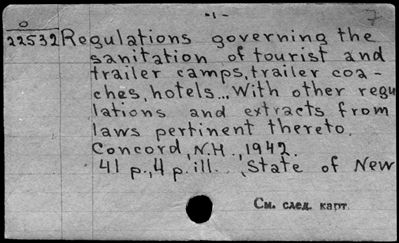 -1-
7
O
22532 Regulations governing the
sanitation of tourist and
trailer camps, trailer coa-
ches, hotels... With other regu
lations and extracts from
laws pertinent thereto.
Concord, N.H., 1942.
41 p., 4 p. ill. ., State of New
См. след. карт.